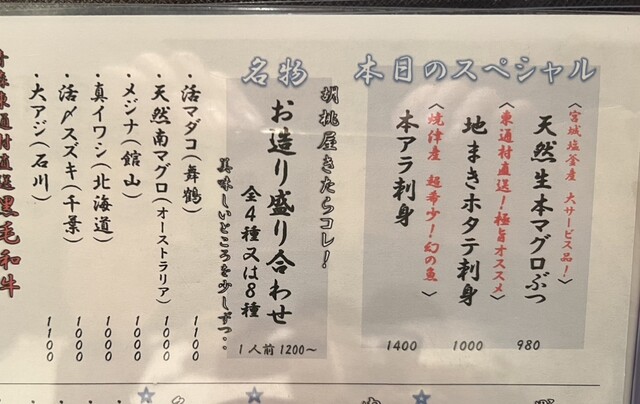 本日のスペシャル
〈宮城塩釜産 大サービス品!〉
天然生本マグロぶつ 980
〈東通村直送!極旨オススメ〉
地まきホタテ刺身 1000
〈焼津産 超希少!幻の魚〉
本アラ刺身 1400
名物
胡桃屋きたらコレ!
お造り盛り合わせ
全4種又は8種
1人前1200〜
美味しいところを少しずつ・・
・活マダコ(舞鶴) 1100
・天然南マグロ(オーストラリア) 1000
・メジナ(館山) 1000
・真イワシ(北海道) 1000
・活〆スズキ(千葉) 1000
・大アジ(石川) 1100
東通村直送黒毛和牛